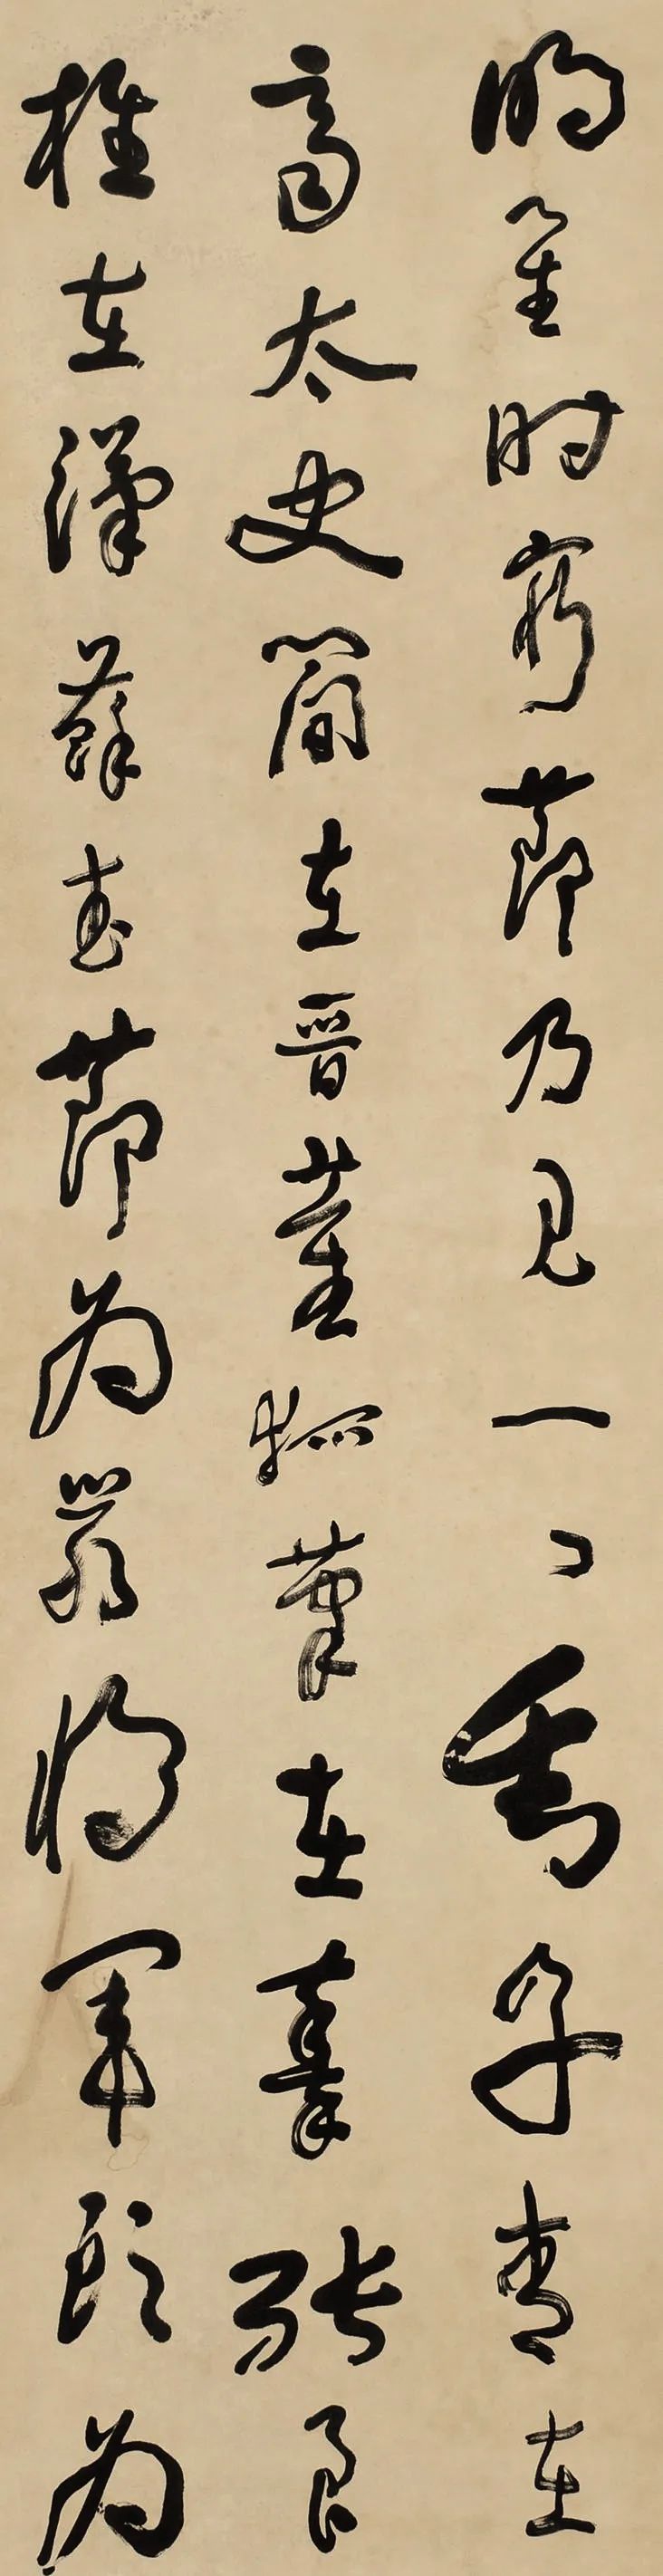 明庭时穷节乃见一一垂丹青在
齐太史简在晋董狐笔在秦张良
椎在汉苏武节为严将军头为